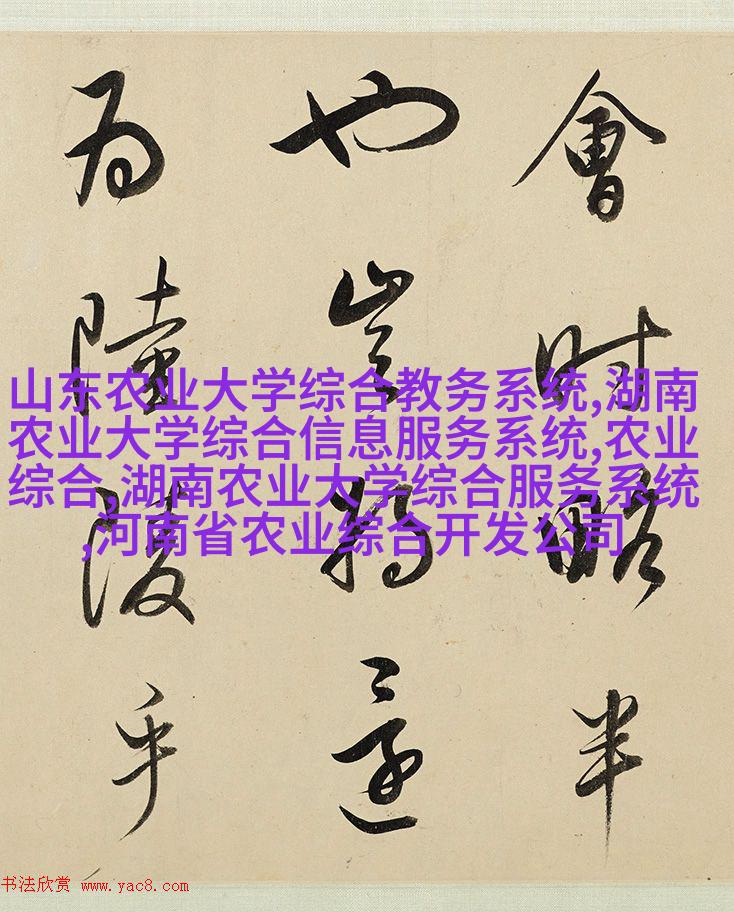 會時略半
也豈將還
為陸陵乎
山东农业大学综合教务系统,湖南
农业大学综合信息服务系统,农业
综合,湖南农业大学综合服务系统
,河南省农业综合开发公司
书法欣赏 www.yac8.com